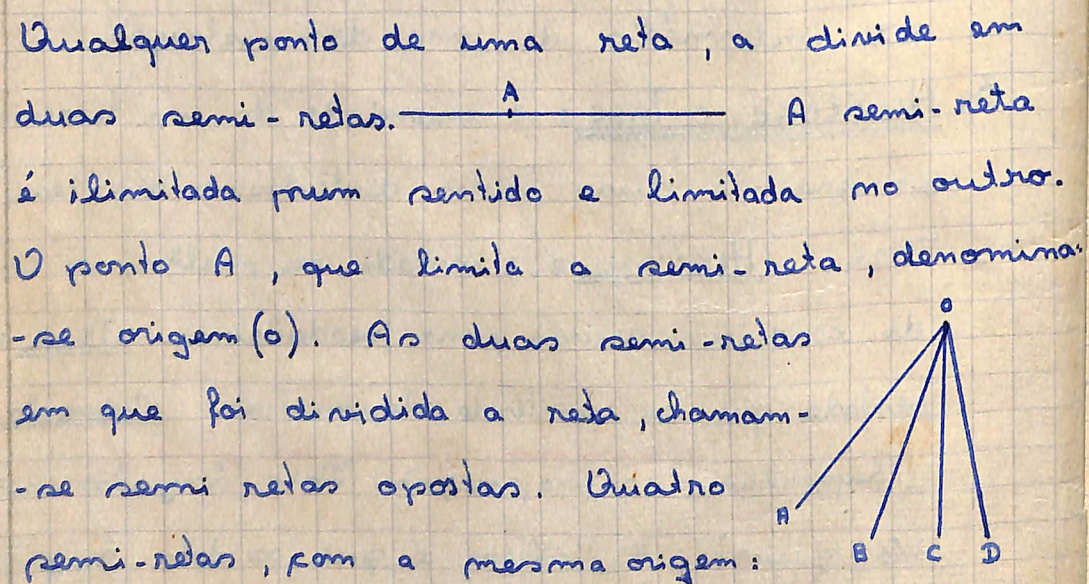 Qualquer ponto de uma reta, a divide em
duas semi-retas. A A semi-reta
é ilimitada num sentido e limitada no outro.
O ponto A, que limita a semi-reta, denomina-
-se origem (o). As duas semi-retas
em que foi dividida a reta, chamam-
-se semi retas opostas. Quatro
semi-retas, com a mesma origem:
O
A B C D